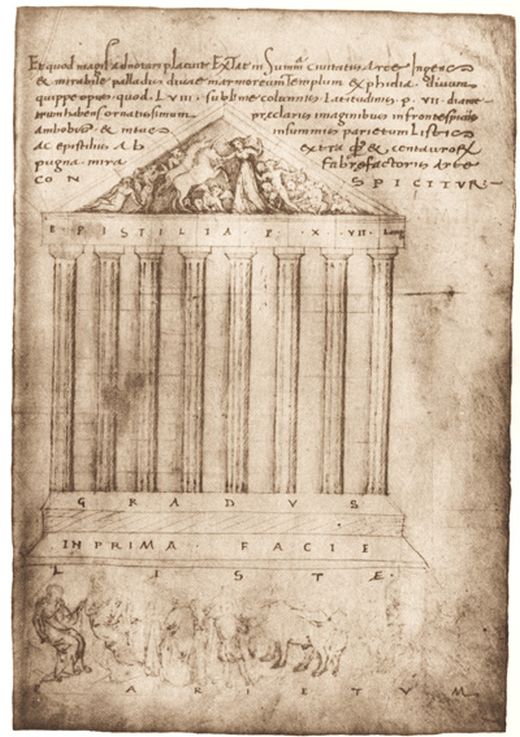 Et quod magis adnotari placuit: Extat in Summa civitatis Arce Ingens
& mirabile palladis divae marmoreum Templum ex phidia. divum
quippe opus quod. LVIII. sublime columnis Latitudinis. p. VII. diame-
trum habens ornatissimum praeclaris imaginibus in frontespitiis
ambobus & intus in summis parietum Listis
ac epistiliis Ab extra & centauror
pugna mira fabrefactoris Arte
CON SPICITVR:-
EPISTILIA. P. X. VII. Long
GRADVS
IN PRIMA. FACIE
LISTE.
PARIETVM